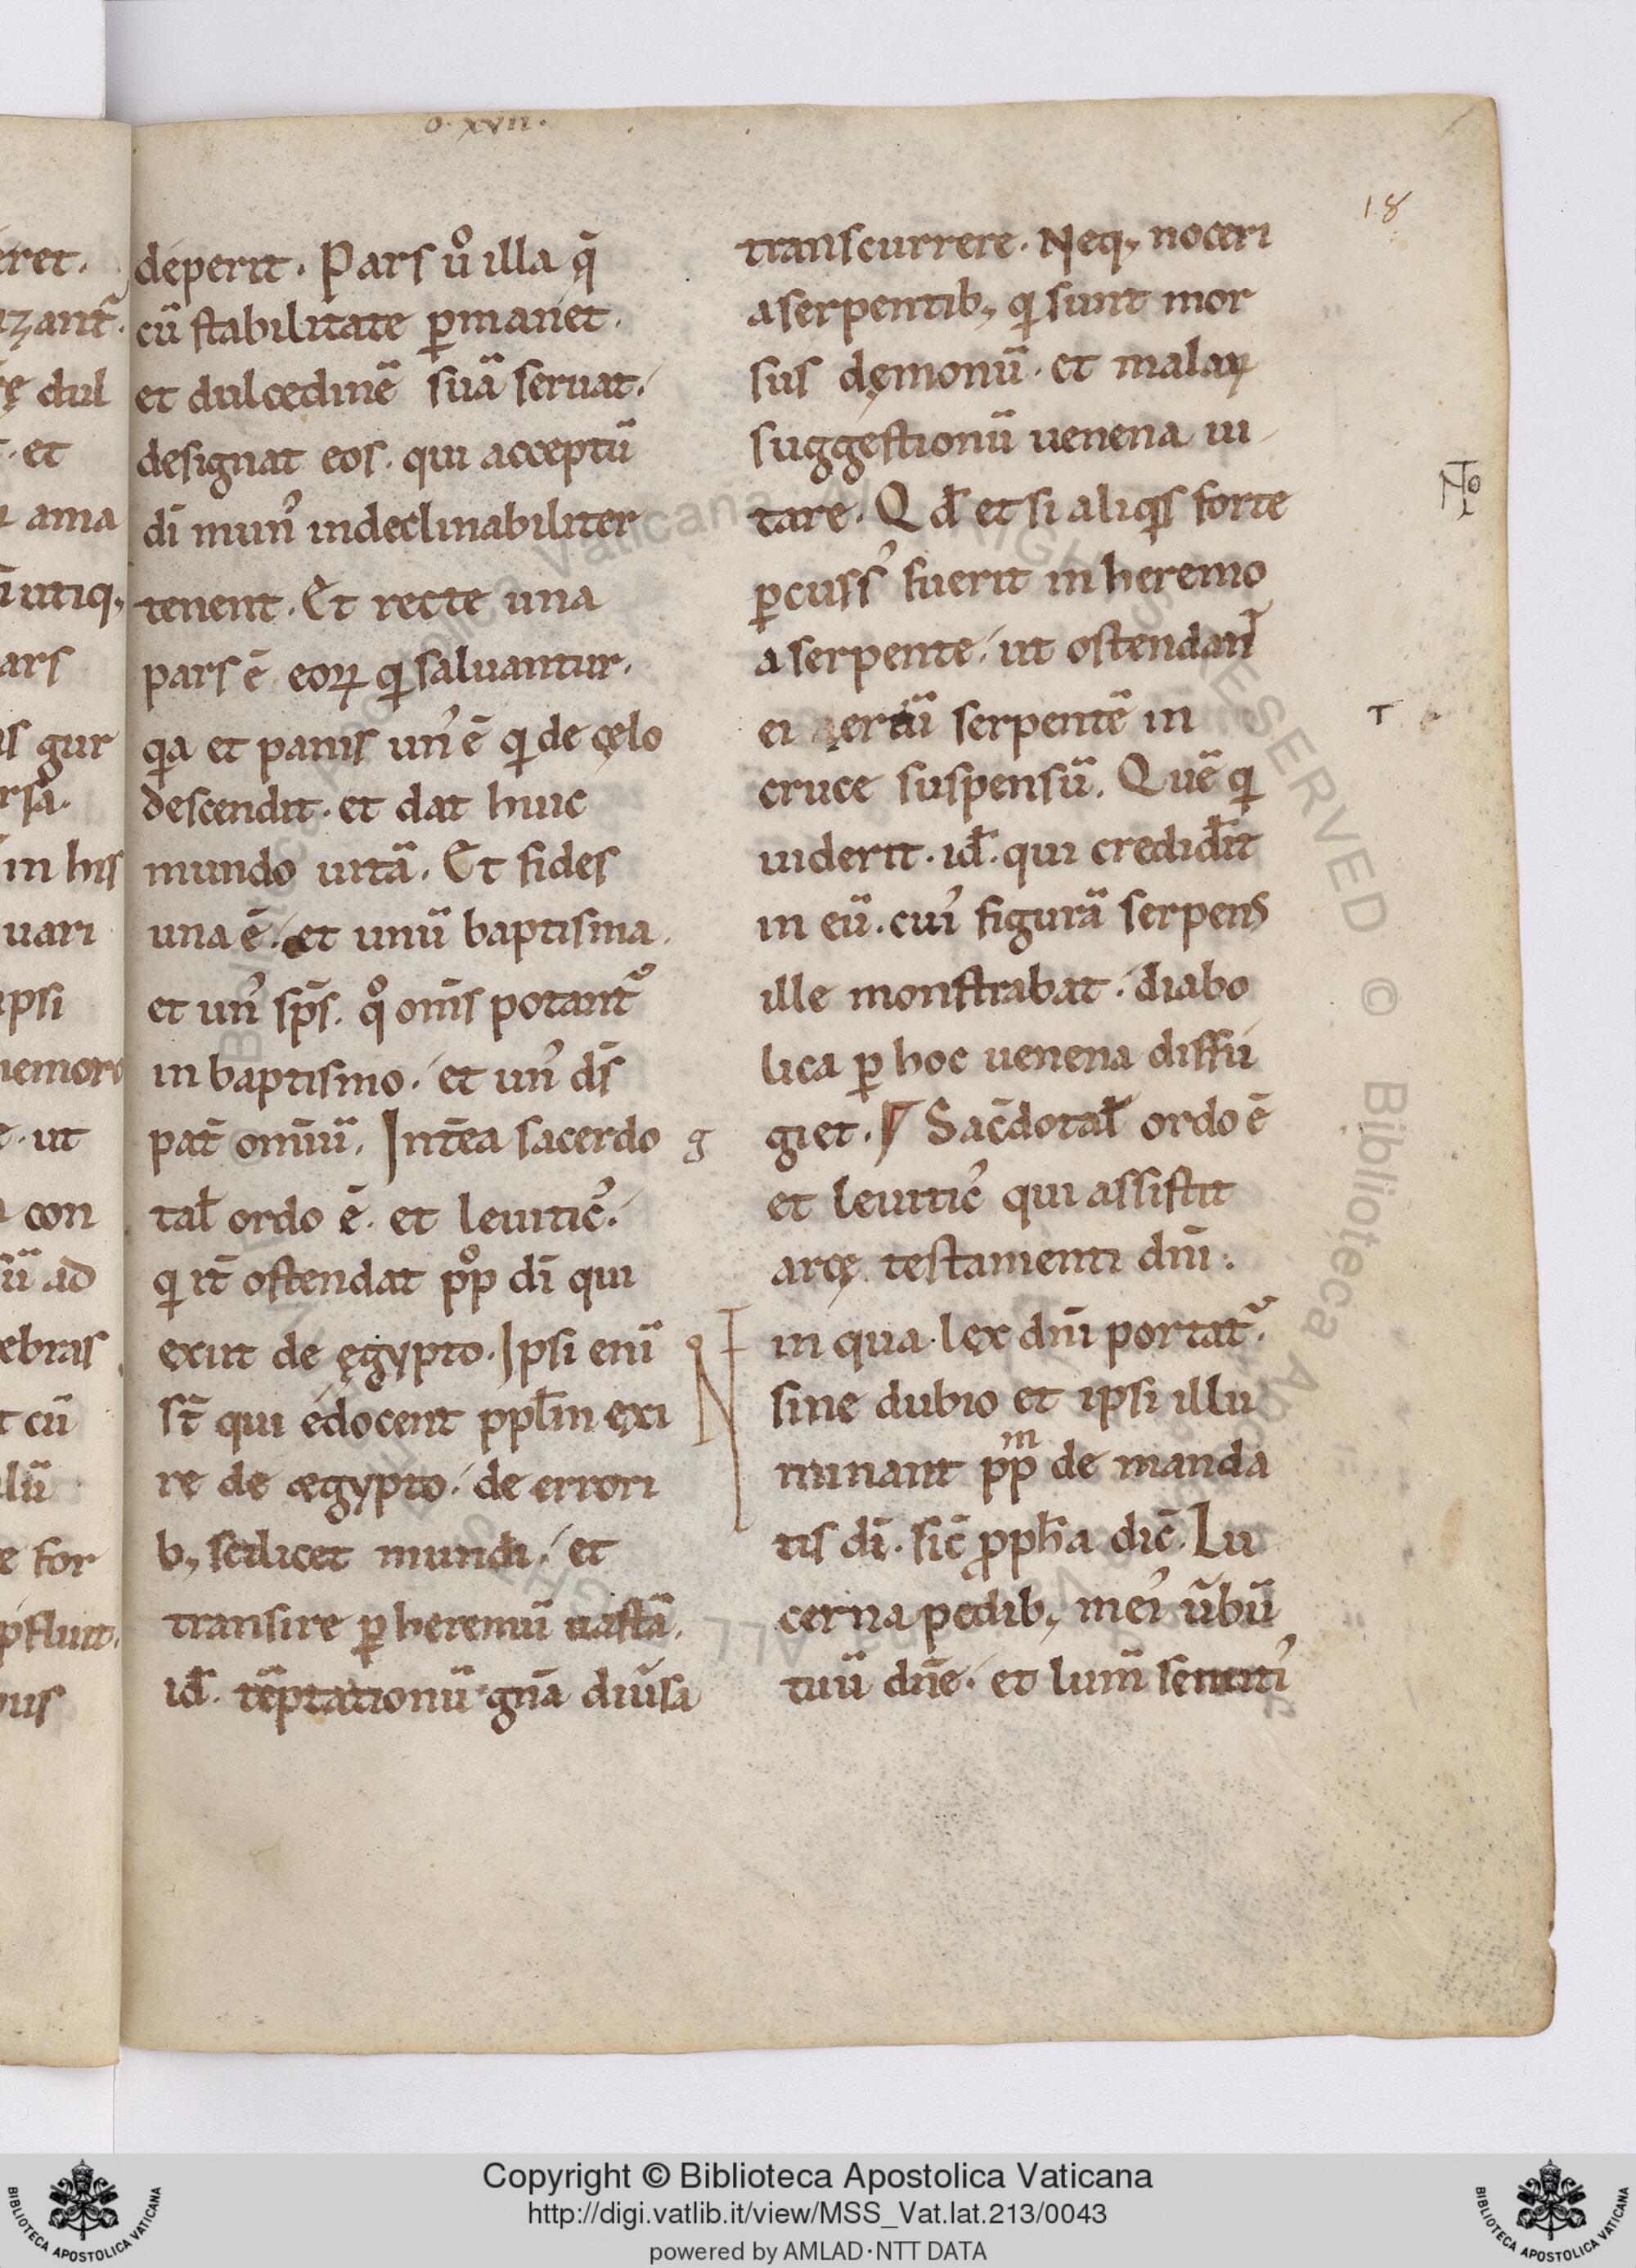 o. xvii.
18
eret.
izant᷑.
ę dul
. et
ama
utiq;
ars
is gur
rsa.
in his
uari
ipsi
nemor
e. ut
con
ad
ebras
t cū
lū
e for
pfluit.
uis
deperit. Pars ůo illa q̄
cū stabilitate ꝑmanet.
et dulcedinē suā seruat.
designat eos. qui acceptū
dī mun᾽ indeclinabiliter
tenent. Et recte una
pars ē eoꝝ qͥ saluantur.
qͥa et panis un᾽ ē qͥ de cęlo
descendit. et dat huic
mundo uitā. Et fides
una ē. et unū baptisma.
et un᾽ sp̄s. qͦ om̄s potant᷑
in baptismo. et un᾽ d̄s
pat̄ omniū. Int̄ea sacerdo
tal̄ ordo ē. et leuitic᾽.
qͥ it̄ ostendat pͦp dī qui
exiit de ęgypto. Ipsi enī
st̄ qui edocent ppl̄m exi
re de ægypto. de errori
b; scilicet mundi. et
transire ꝑ heremū uastā.
id̄. tēptationū gn̄a diūsa
transcurrere. Neq; noceri
a serpentib; qͥ sunt mor
sus dęmonū. et malaꝝ
suggestionū uenena ui
tare. Qd̄ et si aliqͥs forte
ꝑcuss᾽ fuerit in heremo
a serpente. ut ostendant᷑
ei serpentē in
cruce suspensū. Quē qͥ
uiderit. id̄. qui credid̄it
in eū. cui᾽ figurā serpens
ille monstrabat. diabo
lica ꝑ hoc uenena diffu
giet. ¶ Sac̄dotal̄ ordo ē
et leuitic᾽ qui assistit
arcę testamenti dn̄i.
in qua lex dn̄i portat᷑.
sine dubio et ipsi illu
minant ppᵐ de manda
tis dī. sic̄ ꝓph̄a dic̄. Lu
cerna pedib; mei᾽ ūbū
tuū dn̄e. et lum̄ semiti᾽
g
T
Biblioteca Apostolica Vaticana ALL RIGHTS RESERVED ©
Copyright © Biblioteca Apostolica Vaticana
http://digi.vatlib.it/view/MSS_Vat.lat.213/0043
powered by AMLAD·NTT DATA
BIBLIOTECA APOSTOLICA VATICANA
BIBLIOTECA APOSTOLICA VATICANA